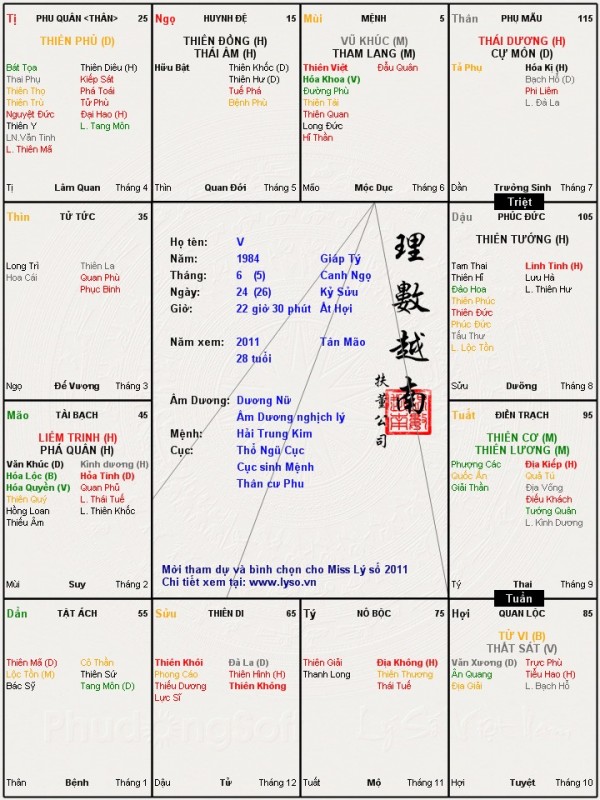 Tị PHU QUÂN <THÂN> 25
THIÊN PHỦ (D)
Bát Tọa Thiên Diêu (H)
Thai Phụ Kiếp Sát
Thiên Thọ Phá Toái
Thiên Trù Tử Phù
Nguyệt Đức Đại Hao (H)
Thiên Y L. Tang Môn
LN.Văn Tinh
L. Thiên Mã
Tị Lâm Quan Tháng 4
Ngọ HUYNH ĐỆ 15
THIÊN ĐỒNG (H)
THÁI ÂM (H)
Hữu Bật Thiên Khốc (D)
Thiên Hư (D)
Tuế Phá
Bệnh Phù
Thìn Quan Đới Tháng 5
Mùi MỆNH 5
VŨ KHÚC (M)
THAM LANG (M)
Thiên Việt Đẩu Quân
Hóa Khoa (V)
Đường Phù
Thiên Tài
Thiên Quan
Long Đức
Hỉ Thần
Mão Mộc Dục Tháng 6
Thân PHỤ MẪU 115
THÁI DƯƠNG (H)
CỰ MÔN (D)
Tả Phụ Hóa Kị (H)
Bạch Hổ (D)
Phi Liêm
L. Đà La
Dần Trưởng Sinh Tháng 7
Triệt
Thìn TỬ TỨC 35
Long Trì Thiên La
Hoa Cái Quan Phù
Phục Binh
Ngọ Đế Vượng Tháng 3
Họ tên: V
Năm: 1984 Giáp Tý
Tháng: 6 (5) Canh Ngọ
Ngày: 24 (26) Kỷ Sửu
Giờ: 22 giờ 30 phút Ất Hợi
Năm xem: 2011 Tân Mão
28 tuổi
Âm Dương: Dương Nữ
Âm Dương nghịch lý
Mệnh: Hải Trung Kim
Cục: Thổ Ngũ Cục
Cục sinh Mệnh
Thân cư Phu
理數越南
扶董公司
Mời tham dự và bình chọn cho Miss Lý số 2011
Chi tiết xem tại: www.lyso.vn
Dậu PHÚC ĐỨC 105
THIÊN TƯỚNG (H)
Tam Thai Linh Tinh (H)
Thiên Hỉ Lưu Hà
Đào Hoa L. Thiên Hư
Thiên Phúc
Thiên Đức
Phúc Đức
Tấu Thư
L. Lộc Tồn
Sửu Dưỡng Tháng 8
Mão TÀI BẠCH 45
LIÊM TRINH (H)
PHÁ QUÂN (H)
Văn Khúc (D) Kình dương (H)
Hóa Lộc (B) Hỏa Tinh (D)
Hóa Quyền (V) Quan Phủ
Thiên Quý L. Thái Tuế
Hồng Loan L. Thiên Khốc
Thiếu Âm
Mùi Suy Tháng 2
Tuất ĐIỀN TRẠCH 95
THIÊN CƠ (M)
THIÊN LƯƠNG (M)
Phượng Các Địa Kiếp (H)
Quốc Ấn Quả Tú
Giải Thần Địa Võng
Điếu Khách
Tướng Quân
L. Kình Dương
Tý Thai Tháng 9
Tuần
Dần TẬT ÁCH 55
Thiên Mã (D) Cô Thần
Lộc Tồn (M) Thiên Sứ
Bác Sỹ Tang Môn (D)
Thân Bệnh Tháng 1
Sửu THIÊN DI 65
Thiên Khôi Đà La (D)
Phong Cáo Thiên Hình (H)
Thiếu Dương Thiên Không
Lực Sĩ
Dậu Tử Tháng 12
Tý NÔ BỘC 75
Thiên Giải Địa Không (H)
Thanh Long Thiên Thương
Thái Tuế
Tuất Mộ Tháng 11
Hợi QUAN LỘC 85
TỬ VI (B)
THẤT SÁT (V)
Văn Xương (D) Trực Phù
Ân Quang Tiểu Hao (H)
Địa Giải L. Bạch Hổ
Hợi Tuyệt Tháng 10